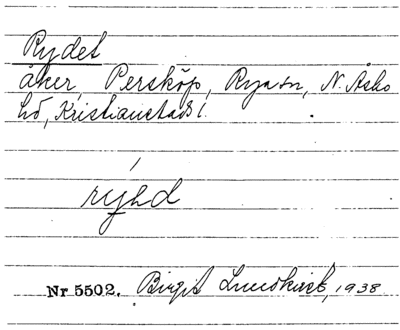 Rydet
åker, Persköp, Rya sn, N. Åsbo
hd, Kristianstads l.
Nr 5502. Birgit Lundkvist, 1938